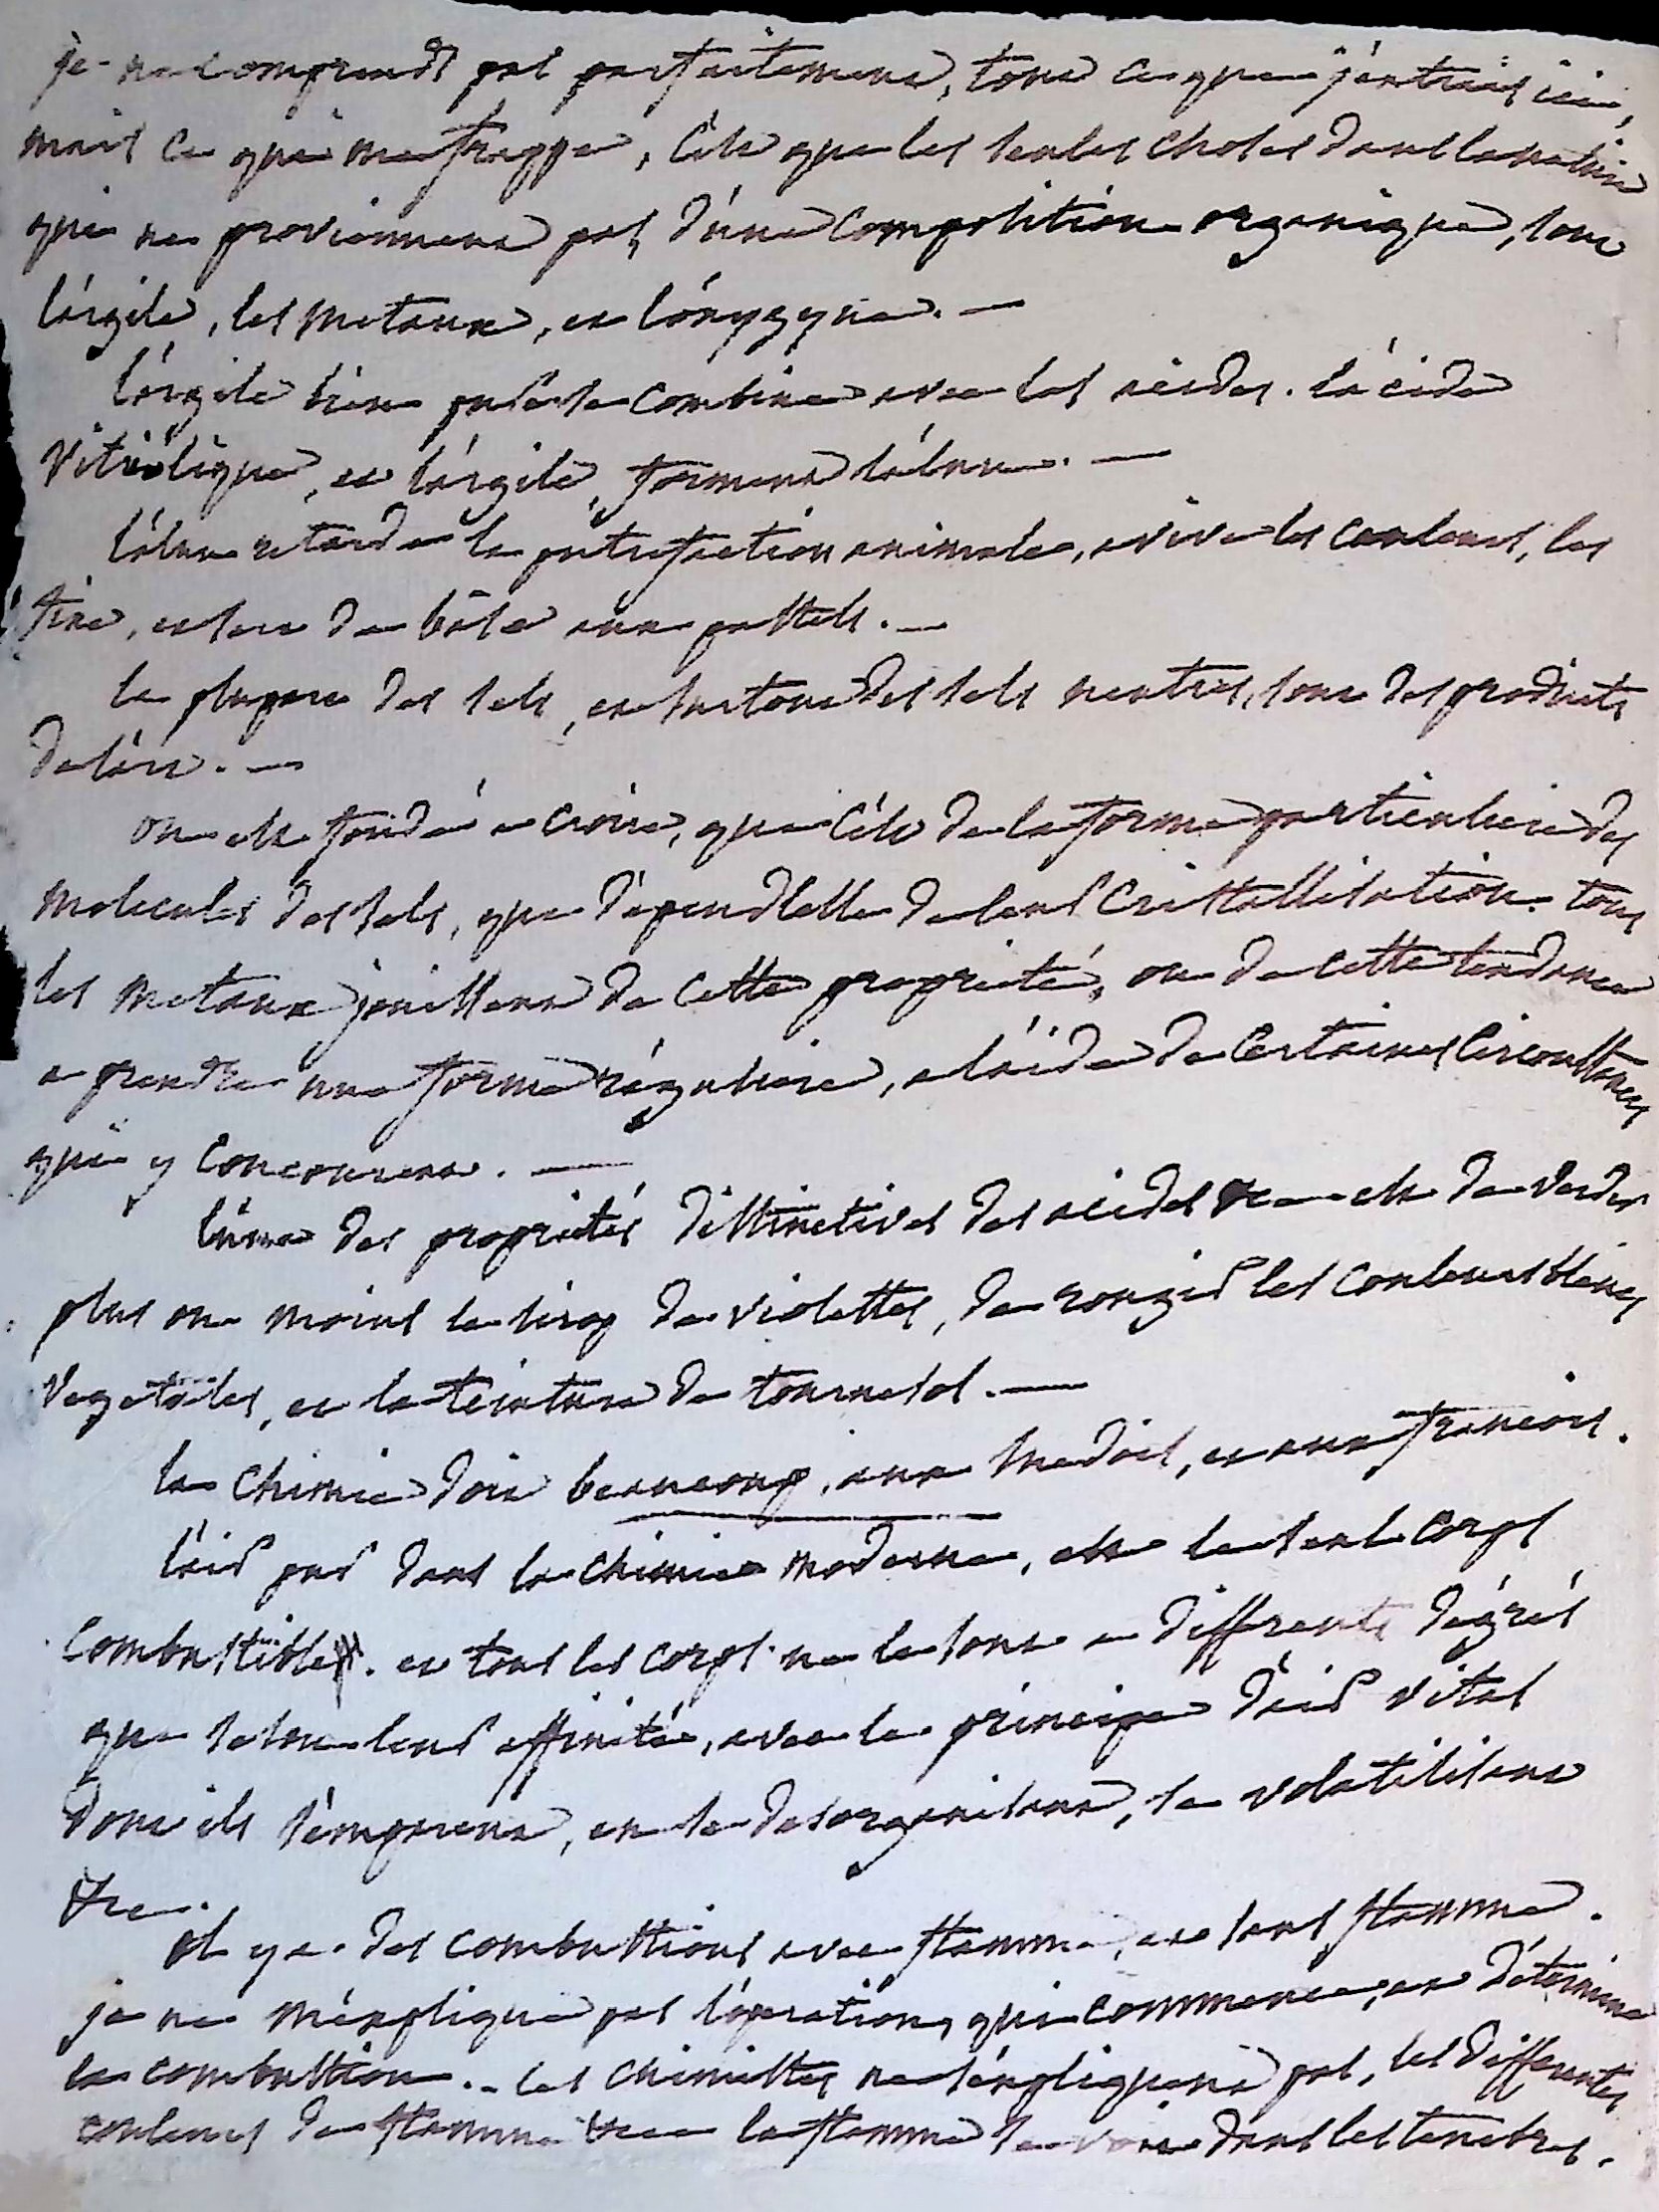 je ne comprends pas parfaitement, tout ce que j'extrais ici,
mais ce qui me frappe, c'est que les seules choses dans la nature
qui ne proviennent pas, d'une composition organique, sont
l'argile, les metaux, et l'oxygyne. —
l'argile bien pure se combine avec les acides. l'acide
vitriolique, et l'argile, forment l'alun. —
l'alun retarde la putrefaction animale, avive les couleurs, les
fixe, et sert de bâse aux pastels. —
la plupart des sels, et surtout des sels neutres, sont des produits
de l'art. —
on est fondé a croire, que c'est de la forme particuliere des
molecules des sels, que dépend celle de leur cristallisation. tous
les metaux jouissent de cette propriété, ou de cette tendance
a prendre une forme réguliere, a l'aide de certaines circonstances
qui y concourent. —
l'une des propriétés distinctives des acides est de verdir
plus ou moins le sirop de violettes, de rougir les couleurs bleues
vegetales, et la teinture de tournesol. —
la chimie doit beaucoup, aux suedois, et aux francois.
l'air pur dans la chimie moderne, est le seul corps
combustible. et tous les corps ne le sont a differents dégrés
que selon leur affinité, avec le principe d'air vital
dont ils s'emparent, en se desorganisant, se volatilisant
&c.
il y a des combustions avec flamme, et sans flamme.
je ne m'explique pas l'opération, qui commence, et détermine
la combustion. - les chimistes ne s'expliquent pas, les differentes
couleurs de flamme &c la flamme se voit dans les tenebres.